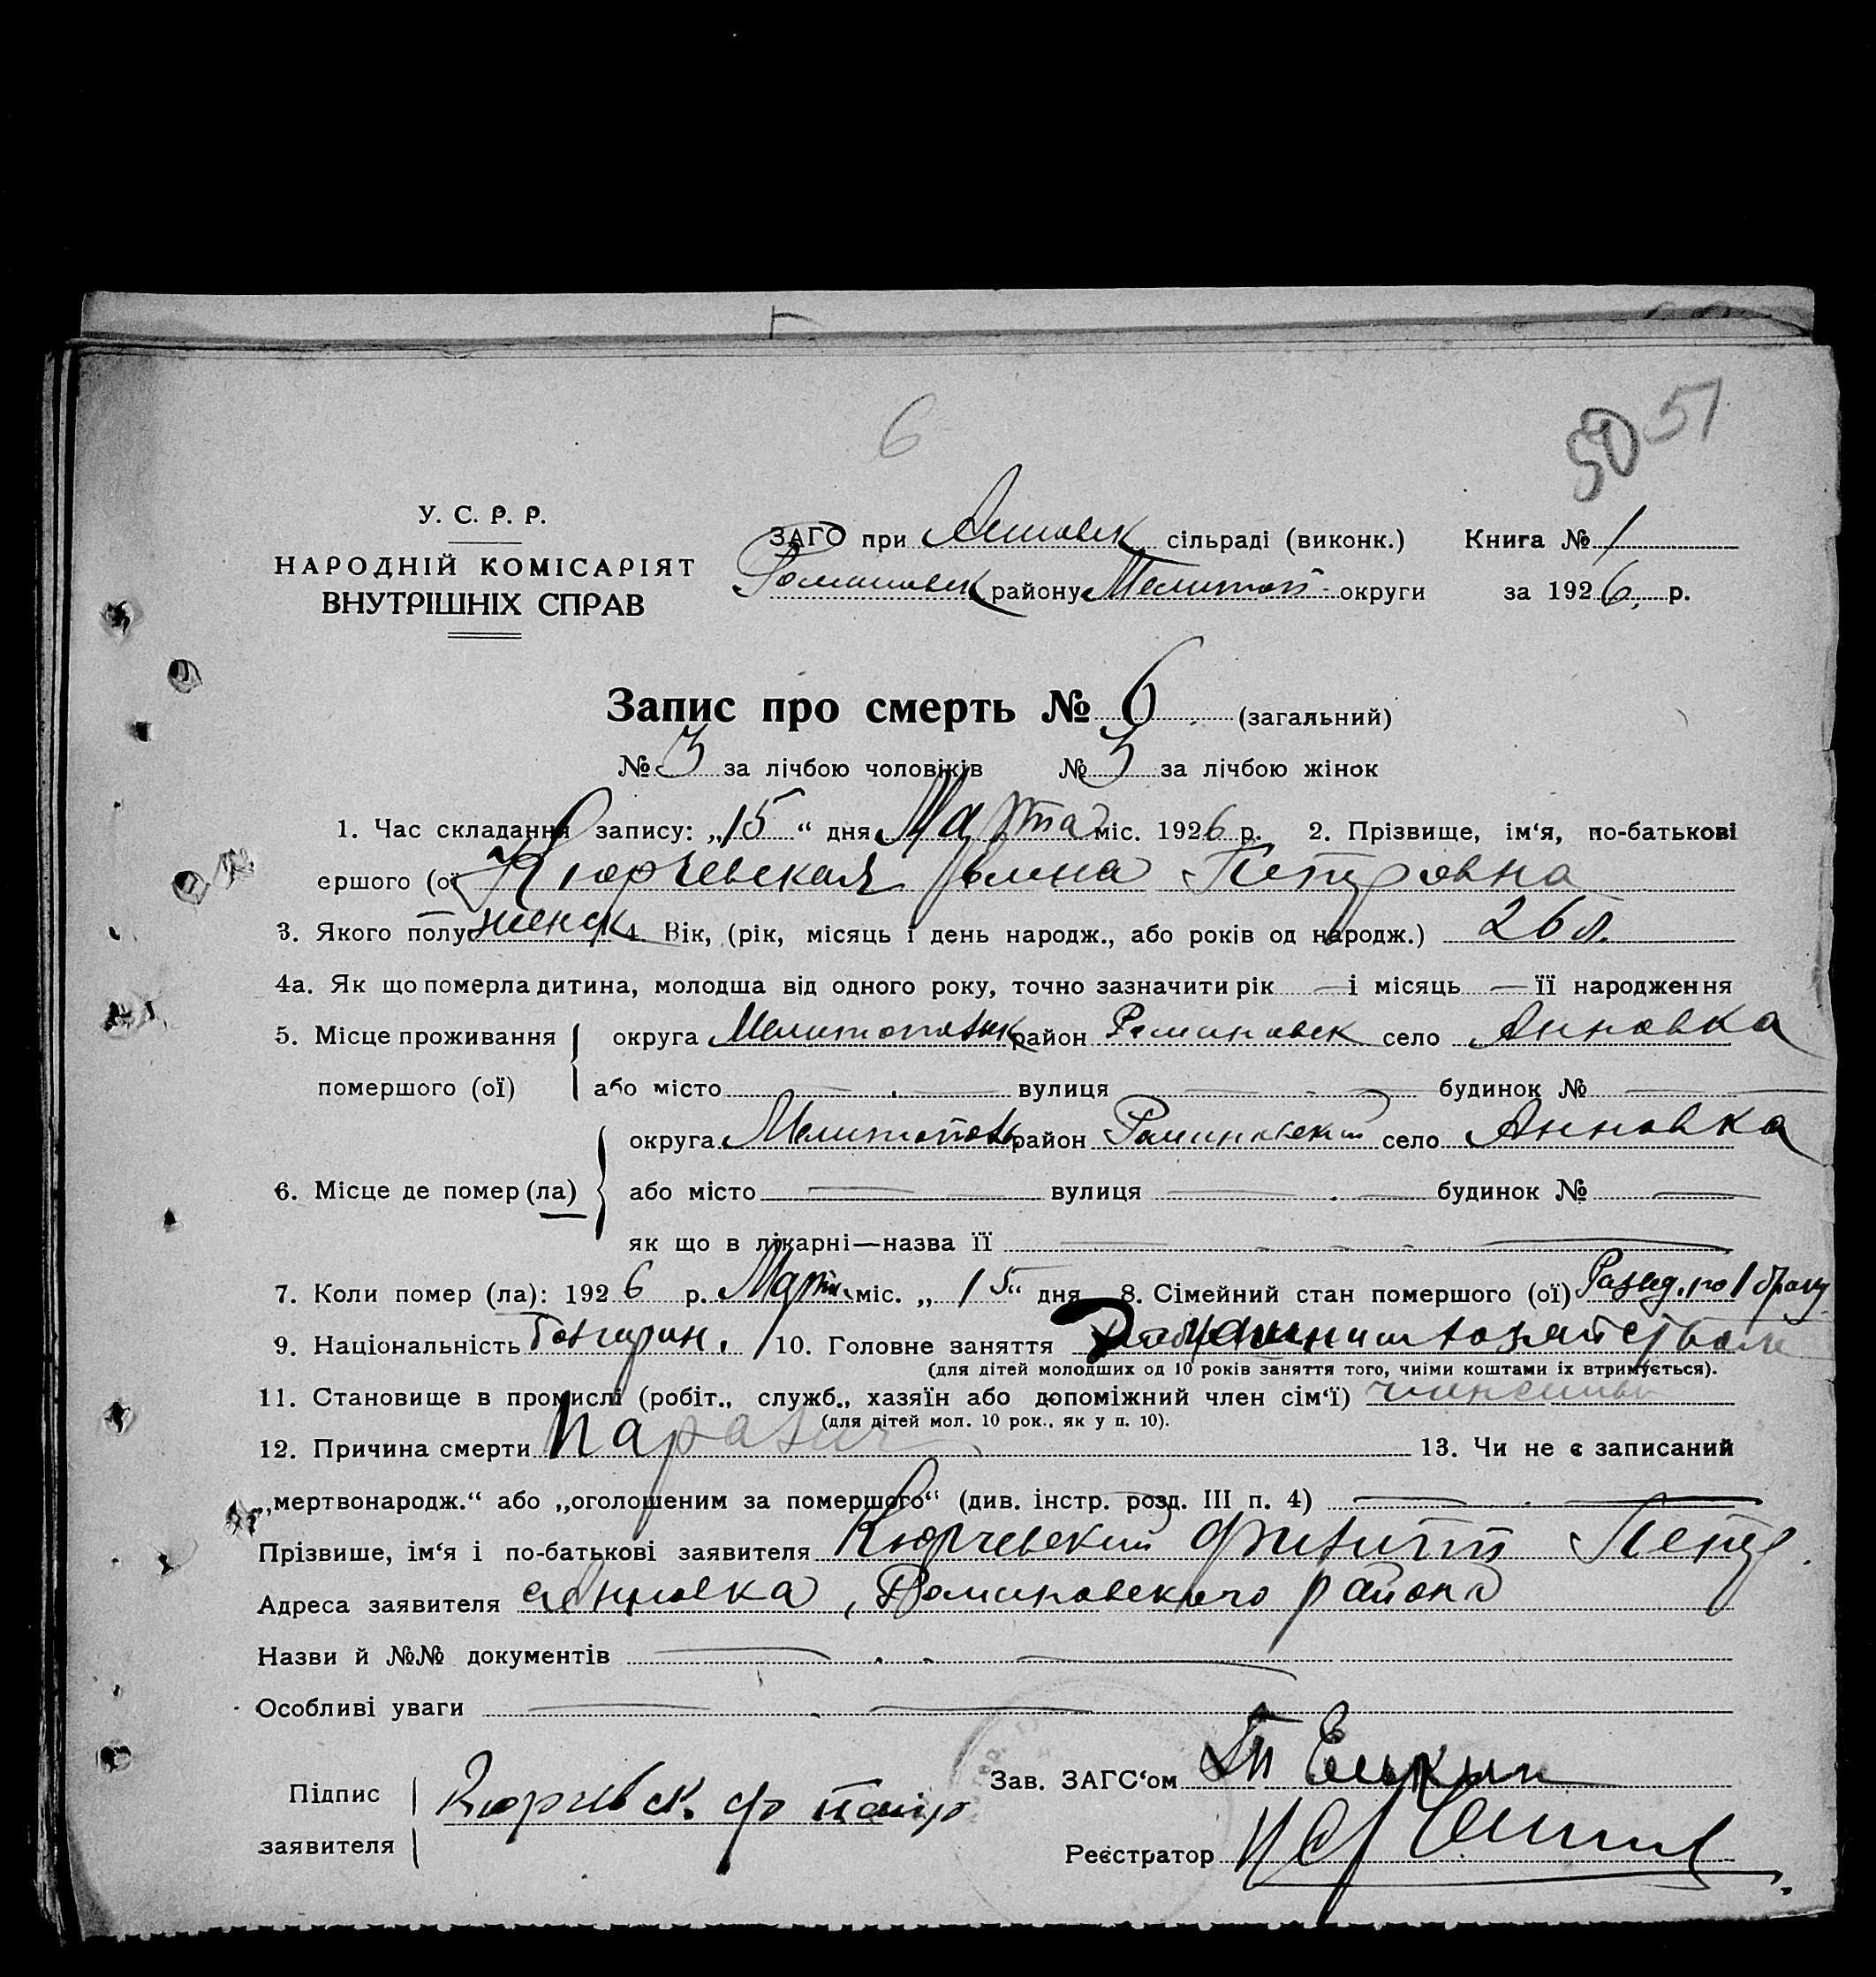 6
50 51
У. С. Р. Р.
НАРОДНІЙ КОМІСАРІЯТ
ВНУТРІШНІХ СПРАВ
ЗАГО при Анновск сільраді (виконк.) Книга № 1
Романовск району Мелитоп округи за 1926 р.
Запис про смерть № 6 (загальний)
№ 3 за лічбою чоловіків № 3 за лічбою жінок
1. Час складання запису: „15“ дня Марта міс. 1926 р. 2. Прізвище, ім‘я, по-батькові
ершого (ої Кюрчевская Елена Петровна
3. Якого полу женск 4 Вік, (рік, місяць і день народж., або років од народж.) 26 л.
4а. Як що померла дитина, молодша від одного року, точно зазначити рік — і місяць — її народження
5. Місце проживання округа Мелитопольск район Романовск село Анновка
помершого (ої) або місто — вулиця — будинок № —
округа Мелитополь район Романовский село Анновка
6. Місце де помер (ла) або місто — вулиця — будинок № —
як що в лікарні—назва її —
7. Коли помер (ла): 1926 р. Март міс. „15“ дня 8. Сімейний стан помершого (ої) Развед. по 1 браку
9. Національність Болгарин. 10. Головне заняття Домашним хозяйством
(для дітей молодших од 10 років заняття того, чиїми коштами їх втримується).
11. Становище в промислі (робіт., служб., хазяїн або допоміжний член сім‘ї) член семьи
(для дітей мол. 10 рок., як у п. 10).
12. Причина смерти Паралич 13. Чи не є записаний
„мертвонародж.“ або „оголошеним за помершого“ (див. інстр. розд. III п. 4) —
Прізвише, ім‘я і по-батькові заявителя Кюрчевский Филипп Петр.
Адреса заявителя Анновка, Романовского района
Назви й №№ документів —
Особливі уваги —
Підпис Кюрчевск. Ф Зав. ЗАГС‘ом
заявителя Реєстратор